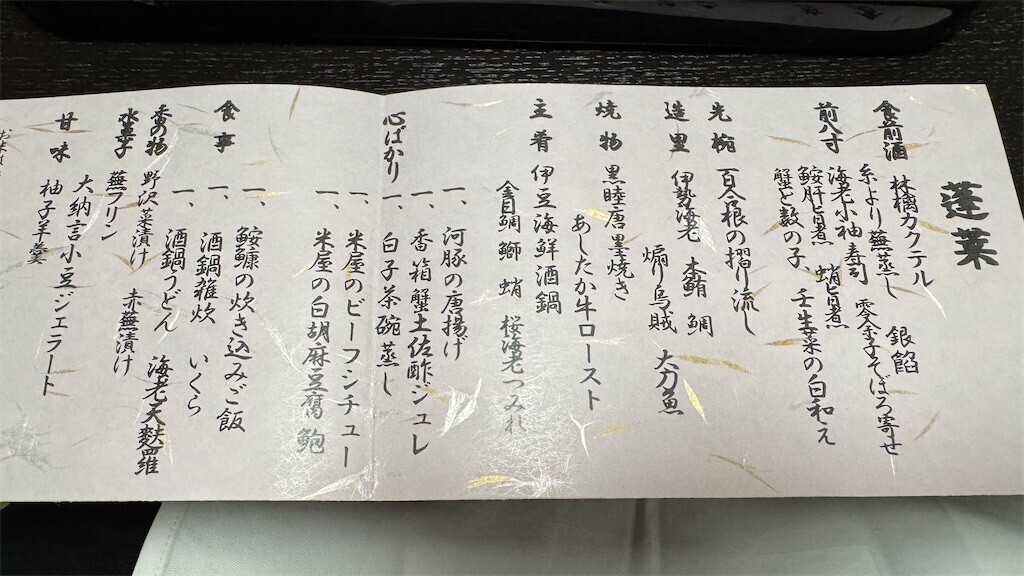 蓬莱
食前酒 林檎カクテル
前八寸 糸より蕪蒸し 銀餡
海老小袖寿司 零余子そぼろ寄せ
鮟肝旨煮 蛸旨煮
蟹と数の子、壬生菜の白和え
先椀 百合根の摺り流し
造里 伊勢海老 本鮪 鯛
煽り烏賊 太刀魚
焼物 黒睦唐墨焼き
あしたか牛ロースト
主肴 伊豆海鮮酒鍋
金目鯛 鰤 蛸 桜海老つみれ
心ばかり
一、河豚の唐揚げ
一、香箱蟹土佐酢ジュレ
一、白子茶碗蒸し
一、米屋のビーフシチュー
一、米屋の白胡麻豆腐 鮑
食事
一、鮟鱇の炊き込みご飯
一、酒鍋雑炊 いくら
一、酒鍋うどん 海老天麩羅
香の物 野沢菜漬け 赤蕪漬け
水菓子 蕪プリン
甘味 大納言小豆ジェラート
柚子羊羹